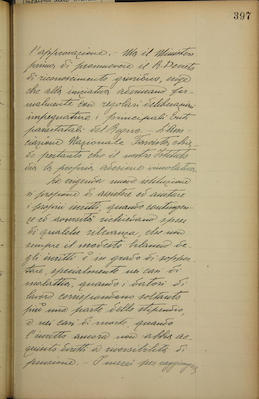 397
l'approvazione. - Ma il Ministero
prima di promuovere il R. Decreto
di riconoscimento giuridico, esige
che alla iniziativa aderiscano for-
malmente con regolari deliberazioni
impegnative i principali Enti
parastatali del Regno. L'Asso-
ciazione Nazionale Fascista chie-
de pertanto che il nostro Istituto
dia la propria adesione
Le esigenze
si propone di assistere ed aiutare
i propri iscritti, quando contingen-
ze ed avversità richiedano spese
di qualche rilevanza, che non
sempre il modesto bilancio de-
gli iscritti è in grado di soppor-
tare, specialmente nei casi di
malattia, quando i datori di
lavoro corrispondono soltanto
più una parte dello stipendio,
e nei casi di morte, quando
l'iscritto ancora non abbia ac-
quisito diritti a riversibilità di
pensione. - I mezzi per raggiunge